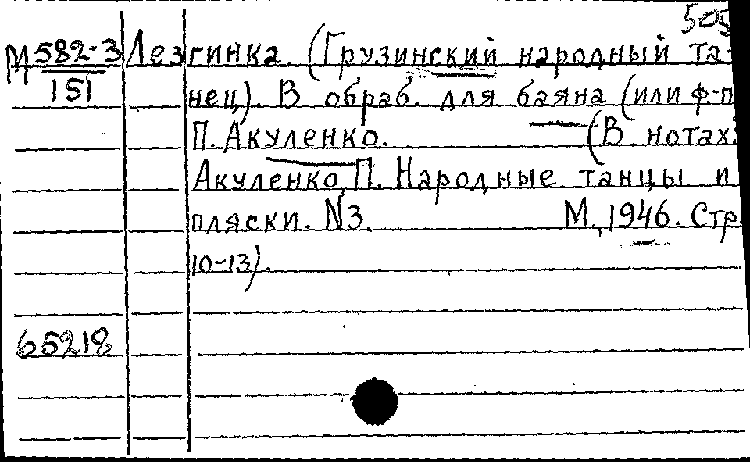 505
М 582-3 Лезгинка. (Грузинский народный та-
151 нец). В обраб. для баяна (или ф-п
П. Акуленко. (В нотах:
Акуленко, П. Народные танцы и
пляски. №3. М., 1946. Стр
10-13).
65218